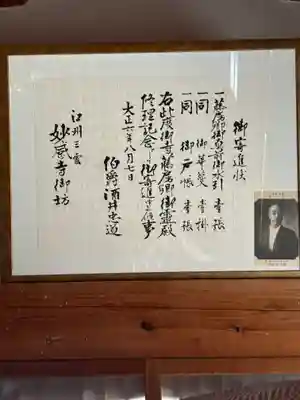 御寄進状
一藤房卿御真前御水引 壹張
一同 御華鬘 壹掛
一同 御戸帳 壹張
右此度御寺藤房卿御霊殿
修理記念ニ御寄進申候事
大正六年八月七日
伯爵酒井忠道
江州三雲
妙感寺御坊